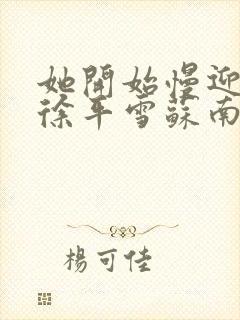 她開始慢迎
徐平雪蘇南
楊可佳